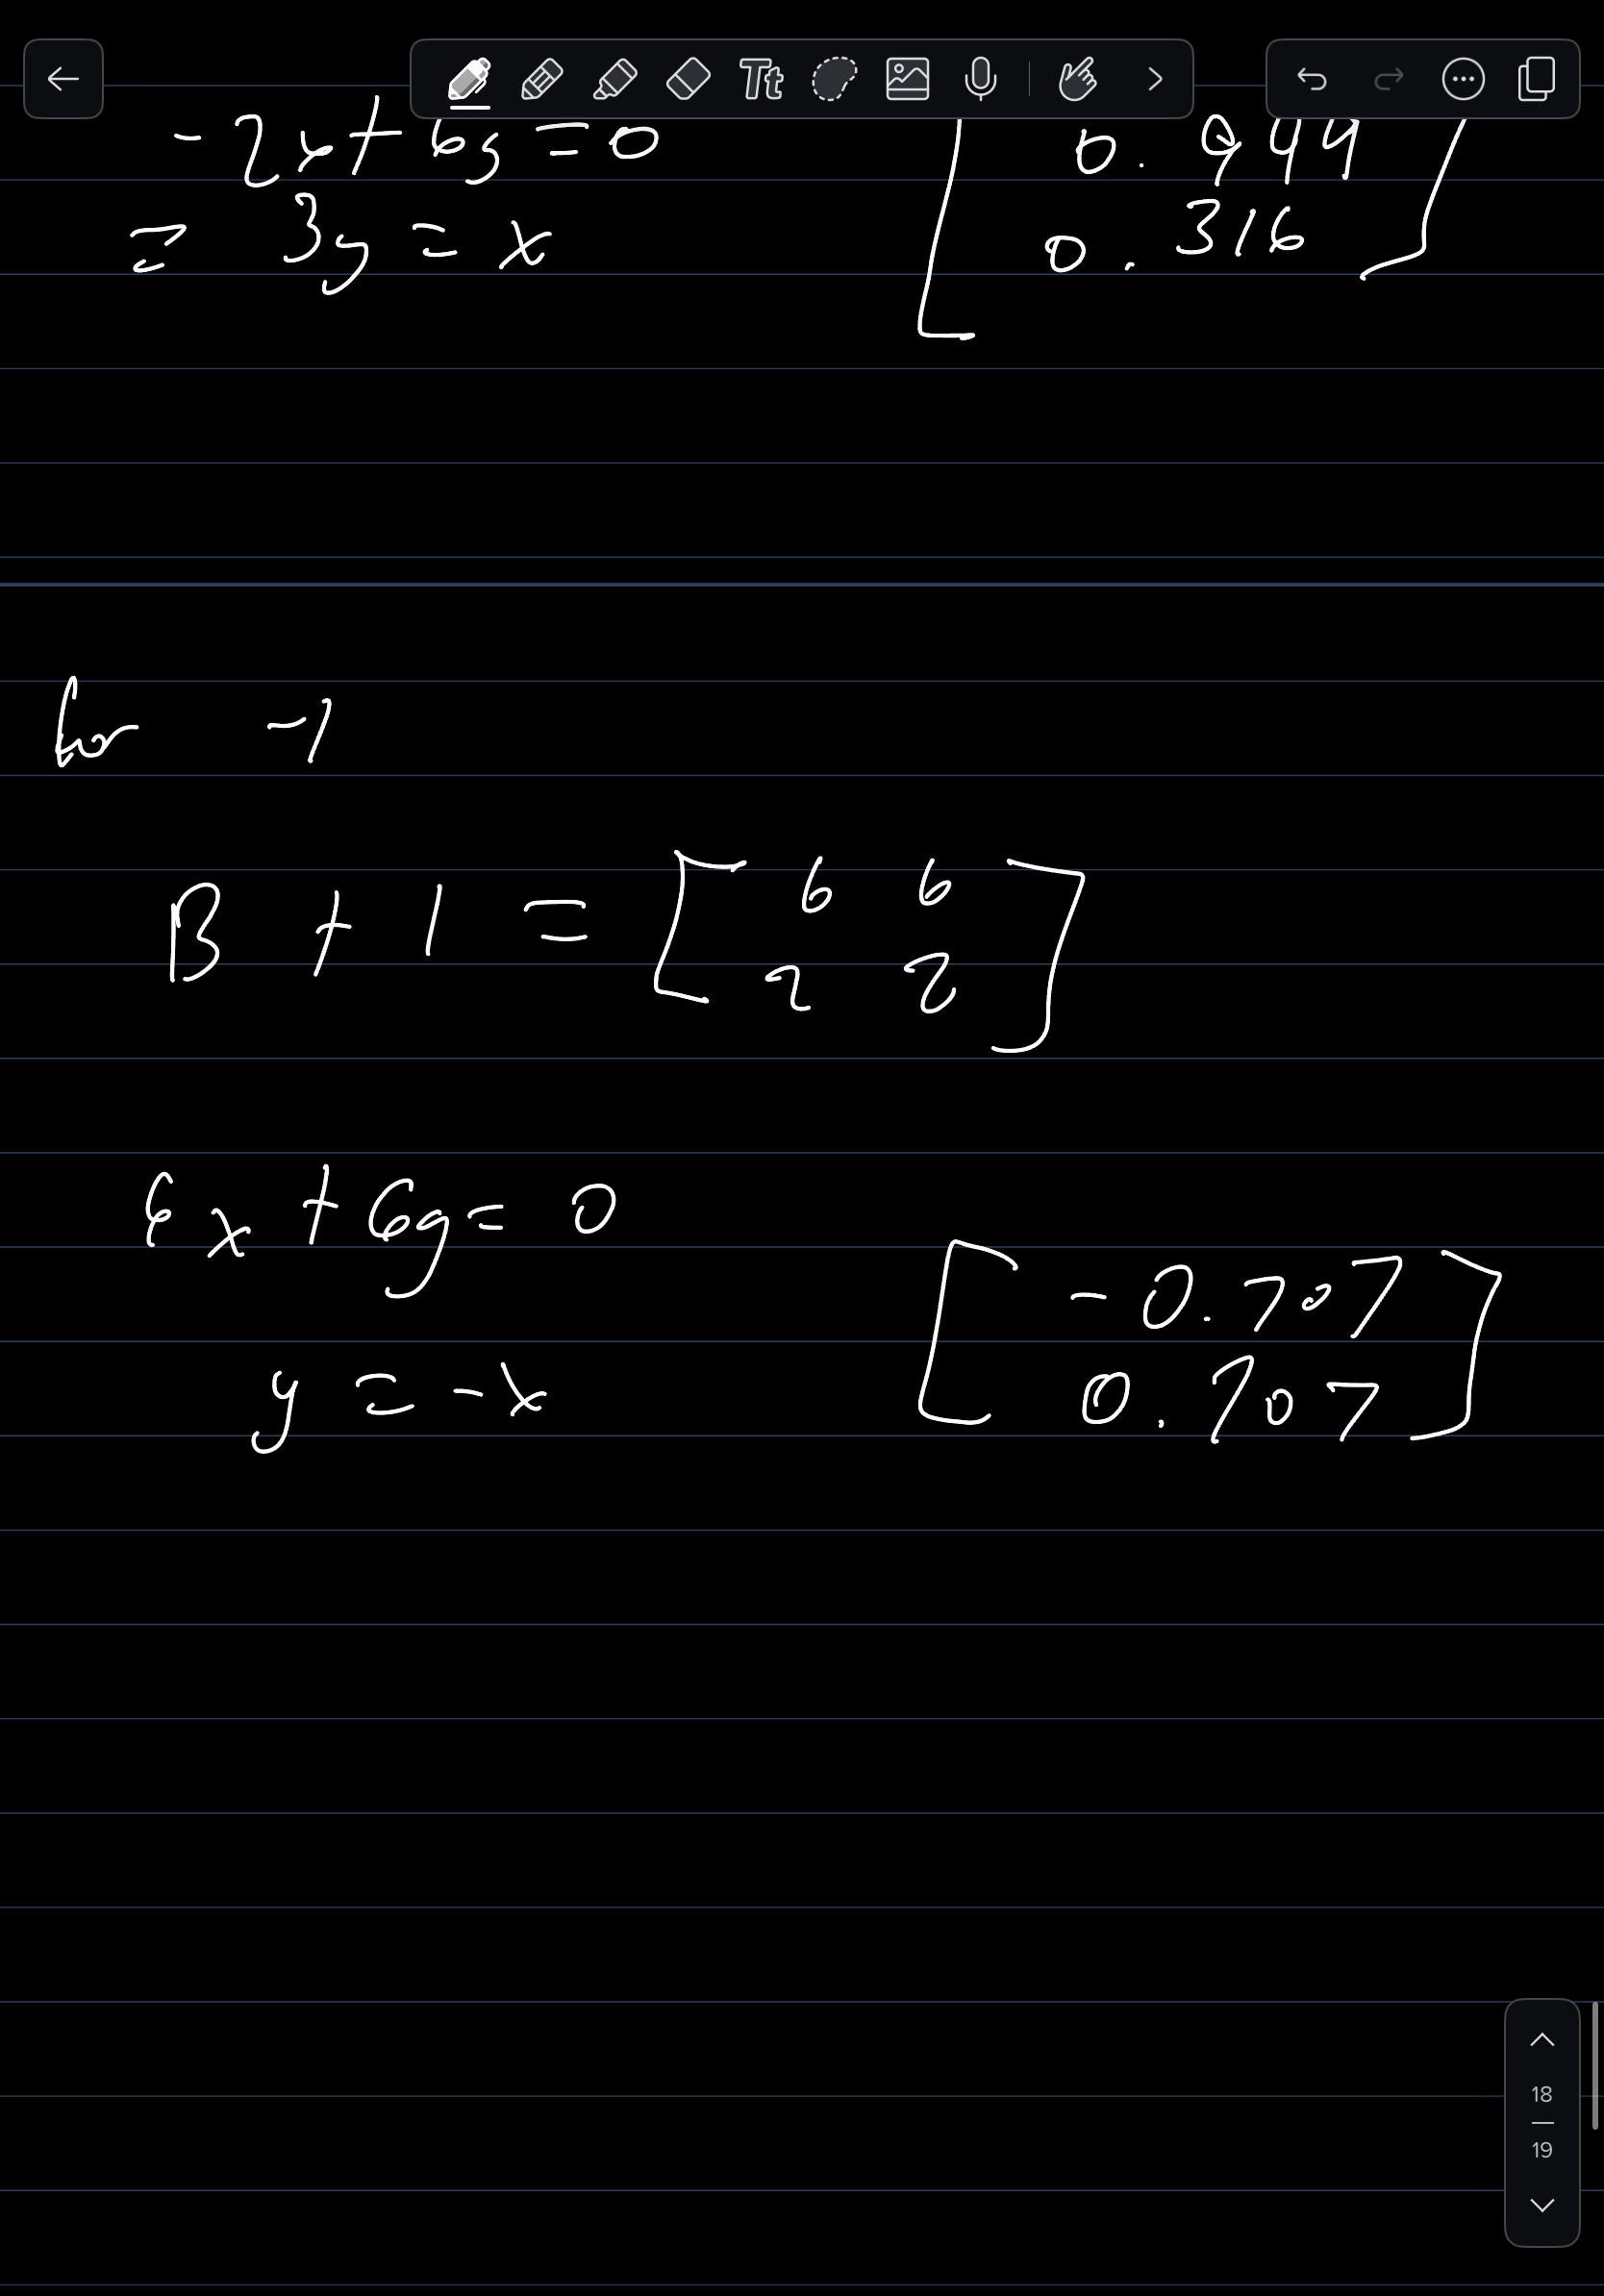 Tt
-2x+6y=0
= 3y = x
[ 0.944
0.316 ]
for -1
B + 1 = [ 6 6
2 2 ]
6x + 6y = 0
y = -x
[ -0.707
0.707 ]
18
19